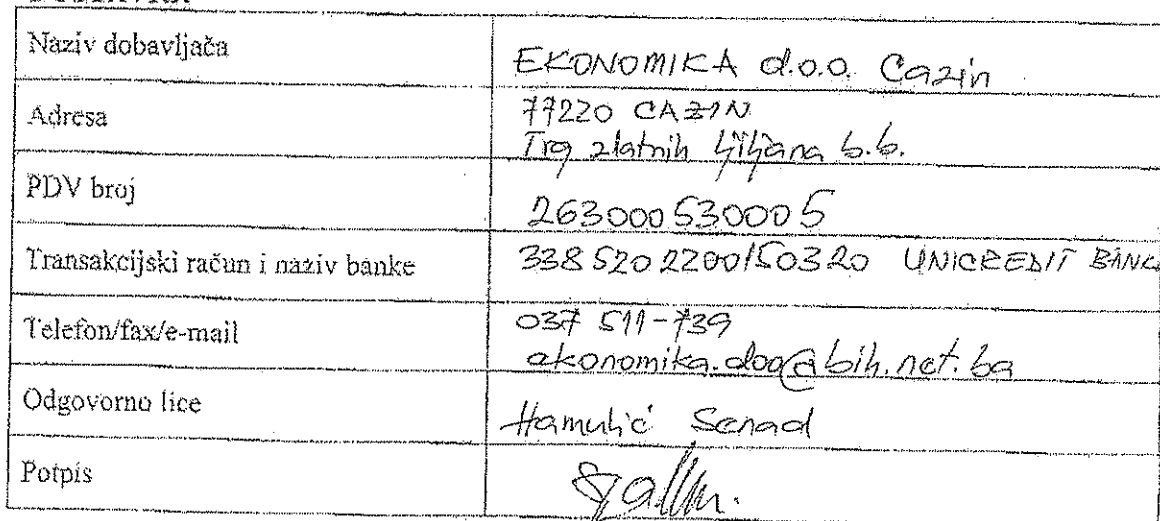 Naziv dobavljača
EKONOMIKA d.o.o. Cazin
Adresa
77220 CAZIN
Trg zlatnih ljiljana b.b.
PDV broj
263000530005
Transakcijski račun i naziv banke
3385202200150320 UNICREDIT BANK
Telefon/fax/e-mail
037 511-739
ekonomika.doo@bih.net.ba
Odgovorno lice
Hamulić Senad
Potpis